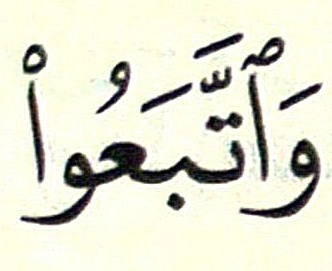 وَٱتَّبَعُوا۟